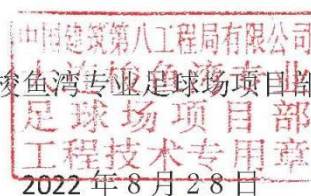 中国建筑第八工程局有限公司
大连梭鱼湾专业
梭鱼湾专业足球场项目部
足球场项目部
工程技术专用章
2022年8月28日